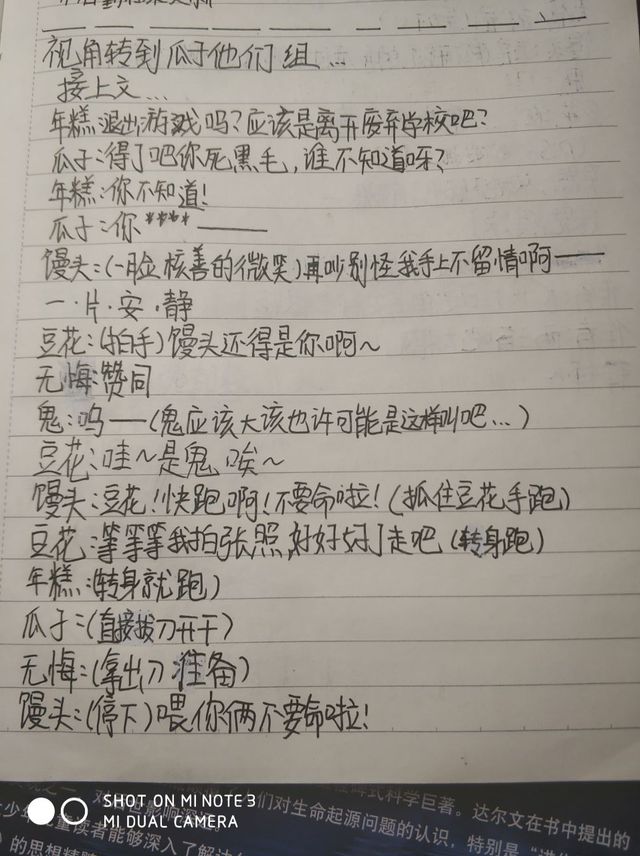 视角转到瓜子他们组...
接上文...
年糕:退出游戏吗?应该是离开废弃学校吧?
瓜子:得了吧你死黑毛,谁不知道呀?
年糕:你不知道!
瓜子:你****——
馒头:(一脸核善的微笑)再吵别怪我手上不留情啊——
一·片·安·静
豆花:(拍手)馒头还得是你啊~
无悔:赞同
鬼:呜——(鬼应该大该也许可能是这样叫吧...)
豆花:哇~是鬼唉~
馒头:豆花!快跑啊!不要命啦!(抓住豆花手跑)
豆花:等等等我拍张照,好好好了走吧(转身跑)
年糕:(转身就跑)
瓜子:(直接拔刀开干)
无悔:(拿出刀准备)
馒头:(停下)喂你俩不要命啦!
SHOT ON MI NOTE 3
MI DUAL CAMERA
科学巨著。达尔文在书中提出的
们对生命起源问题的认识,特别是
读者能够深入了解